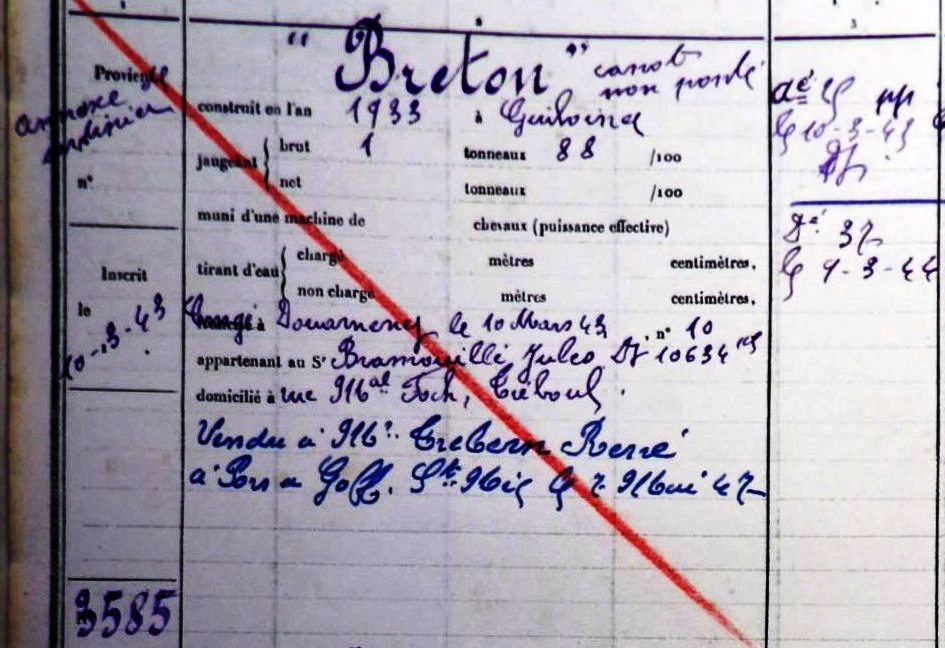 " Breton " canot
non ponté
Provient
annexe
construit en l'an 1933 à Guilvinec
jaugeant { brut 1 tonneaux 88 /100
net tonneaux /100
n°
muni d'une machine de chevaux (puissance effective)
tirant d'eau { chargé mètres centimètres.
non chargé mètres centimètres.
Inscrit
le
10-3-43
Congé à Douarnenez le 10 Mars 43, n° 10
appartenant au Sr Bramoullé Jules Dz 10634
domicilié à rue Mal Foch, Tréboul.
Vendu à Mr. Trebern René
à Pors a Goff. le 7 Mai 47
3585
le 10-3-43
37
le 7-3-44